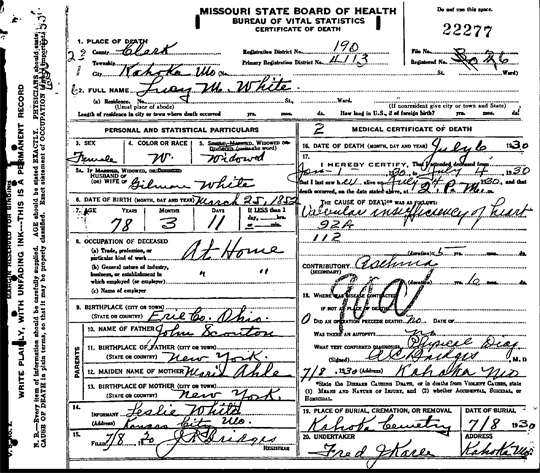 MISSOURI STATE BOARD OF HEALTH
BUREAU OF VITAL STATISTICS
CERTIFICATE OF DEATH
Do not use this space.
22277
1. PLACE OF DEATH
County Clark
Registration District No. 190
File No.
Township
Primary Registration District No. 4113
Registered No. 26
City Kahoka Mo. No. St. Ward)
2. FULL NAME Lucy M. White.
(a) Residence, No. St., Ward.
(Usual place of abode)
(If nonresident give city or town and State)
Length of residence in city or town where death occurred yrs. mos. ds. How long in U. S., if of foreign birth? yrs. mos. ds.
PERSONAL AND STATISTICAL PARTICULARS
3. SEX Female
4. COLOR OR RACE W.
5. SINGLE, MARRIED, WIDOWED OR DIVORCED (write the word) Widowed
5A. IF MARRIED, WIDOWED, OR DIVORCED
HUSBAND OF
(OR) WIFE OF Gilman White
6. DATE OF BIRTH (MONTH, DAY AND YEAR) March 25, 1852
7. AGE YEARS 78 MONTHS 3 DAYS 11 If LESS than 1 day, hrs. or min.
8. OCCUPATION OF DECEASED
(a) Trade, profession, or particular kind of work At Home
(b) General nature of industry, business, or establishment in which employed (or employer) " "
(c) Name of employer
9. BIRTHPLACE (CITY OR TOWN) Erie Co. Ohio.
(STATE OR COUNTRY)
PARENTS
10. NAME OF FATHER John Scouton
11. BIRTHPLACE OF FATHER (CITY OR TOWN)
(STATE OR COUNTRY) New York.
12. MAIDEN NAME OF MOTHER Maria
13. BIRTHPLACE OF MOTHER (CITY OR TOWN)
(STATE OR COUNTRY) New York.
14. INFORMANT Leslie White
(Address) Kansas City Mo.
15. FILED 7/8 30 J.R. Bridges
REGISTRAR
2 MEDICAL CERTIFICATE OF DEATH
16. DATE OF DEATH (MONTH, DAY AND YEAR) July 6 1930
17. I HEREBY CERTIFY, That I attended deceased from
Jan - 1 - 1930, to July 4 1930
that I last saw h alive on July 4 1930, and that
death occurred, on the date stated above, at 2 P. m.
THE CAUSE OF DEATH WAS AS FOLLOWS:
Valvular insufficiency of heart
92A
112
(duration) 5
CONTRIBUTORY Asthma
(SECONDARY)
(duration) yrs. 10
18. WHERE WAS DISEASE CONTRACTED
IF NOT AT PLACE OF DEATH?
DID AN OPERATION PRECEDE DEATH? No. DATE OF
WAS THERE AN AUTOPSY? No
WHAT TEST CONFIRMED DIAGNOSIS? Physical Diag
(Signed) A C Bridges M. D.
7/8 1930 (Address) Kahoka Mo
*State the DISEASE CAUSING DEATH, or in deaths from VIOLENT CAUSES, state
(1) MEANS AND NATURE OF INJURY, and (2) whether ACCIDENTAL, SUICIDAL, or
HOMICIDAL.
19. PLACE OF BURIAL, CREMATION, OR REMOVAL Kahoka Cemetry
DATE OF BURIAL 7/8 1930
20. UNDERTAKER Fred J Karle
ADDRESS Kahoka Mo.
WRITE PLAINLY, WITH UNFADING INK—THIS IS A PERMANENT RECORD
N. B.—Every item of information should be carefully supplied. AGE should be stated EXACTLY. PHYSICIANS should state
CAUSE OF DEATH in plain terms, so that it may be properly classified. Exact statement of OCCUPATION